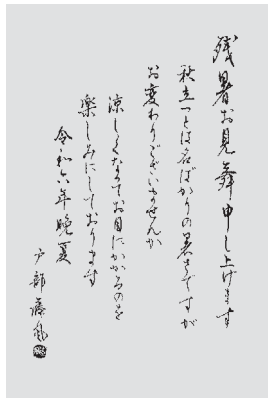 残暑お見舞申し上げます
秋立つとは名ばかりの暑さですが
お変わりございませんか
涼しくなってお目にかかるのを
楽しみにしております
令和六年晩夏
戸部